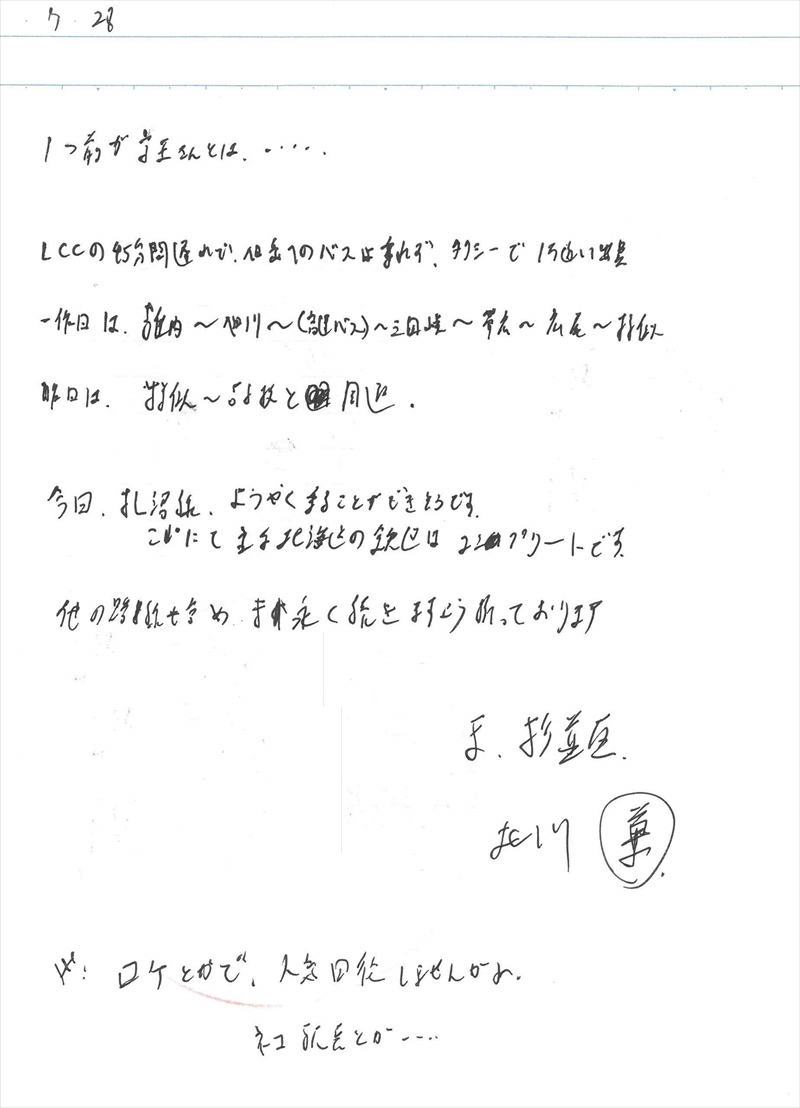 7.28
1つ前が学王さんとは、・・・・・
LCCの45分間遅れで、のバスは乗れず、タクシーで1万近い出費
一昨日は、稚内〜旭川〜(高速バス)〜三国峠〜帯広〜広尾〜様似
昨日は、様似〜と周辺.
今回、札沼線、ようやく乗ることができそうです.
これにて主な北海道の鉄道はコンプリートです.
他の路線も含め、末永く続きますよう祈っております
杉並区.
川
ロケとかで、人気回復しませんかね.
ネコ駅長とか・・・・